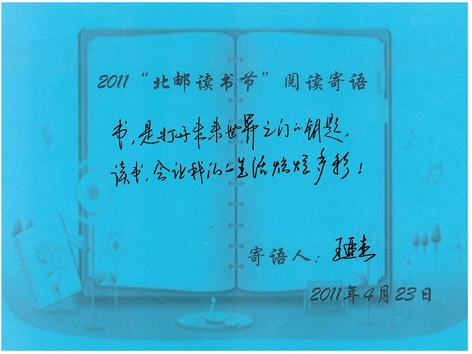 2011“北邮读书节”阅读寄语
书,是打开未来世界之门的钥匙,
读书,会让我们的生活灿烂多彩!
寄语人:
2011年4月23日